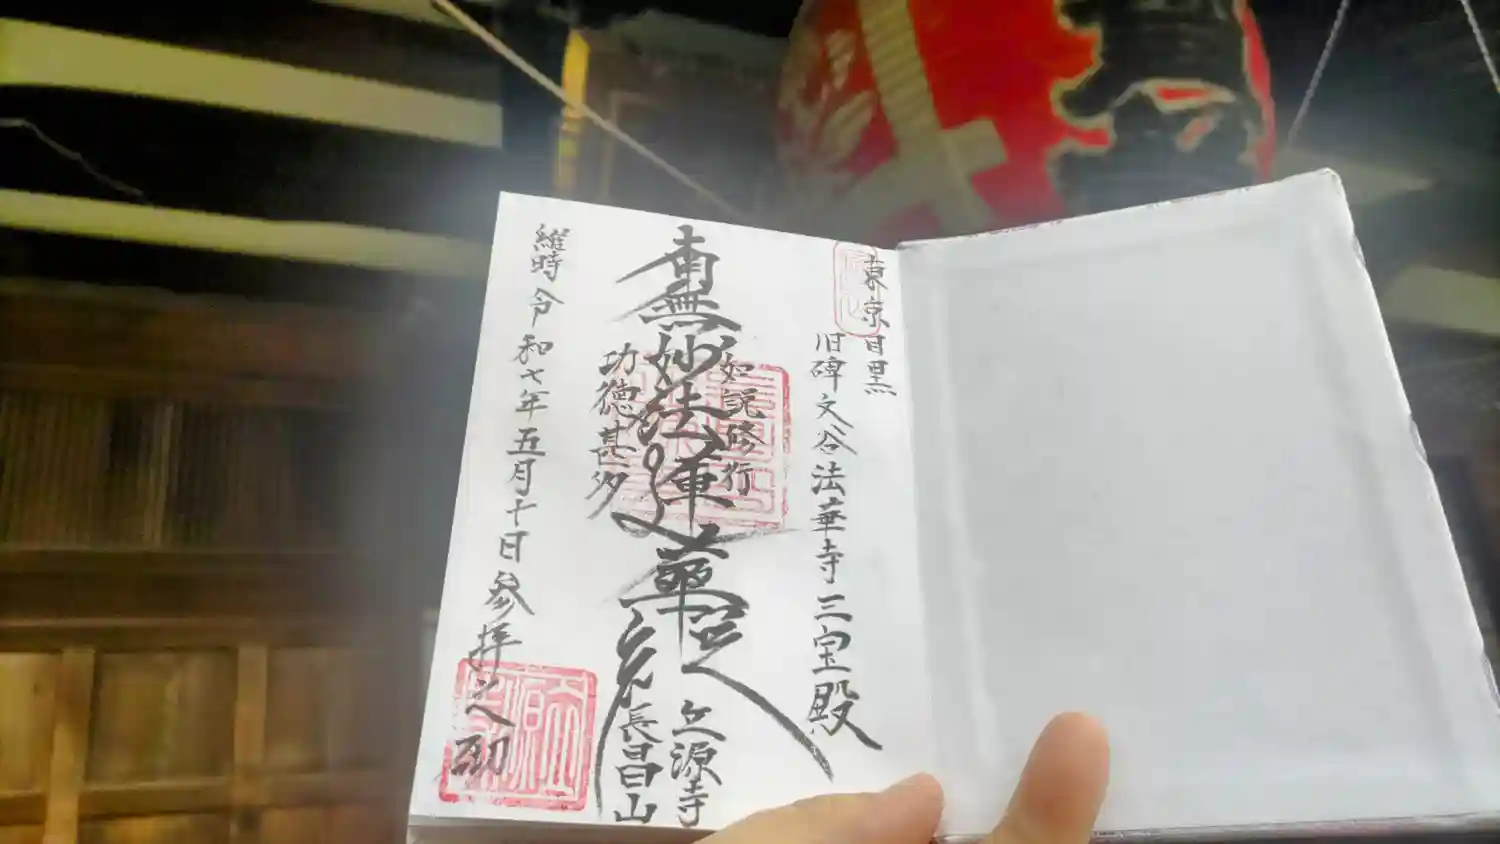 東京目黒
旧碑文谷法華寺三宝殿
如説修行
南無妙法蓮華経
功徳甚多
立源寺
長昌山
維時令和七年五月十日参拝之砌